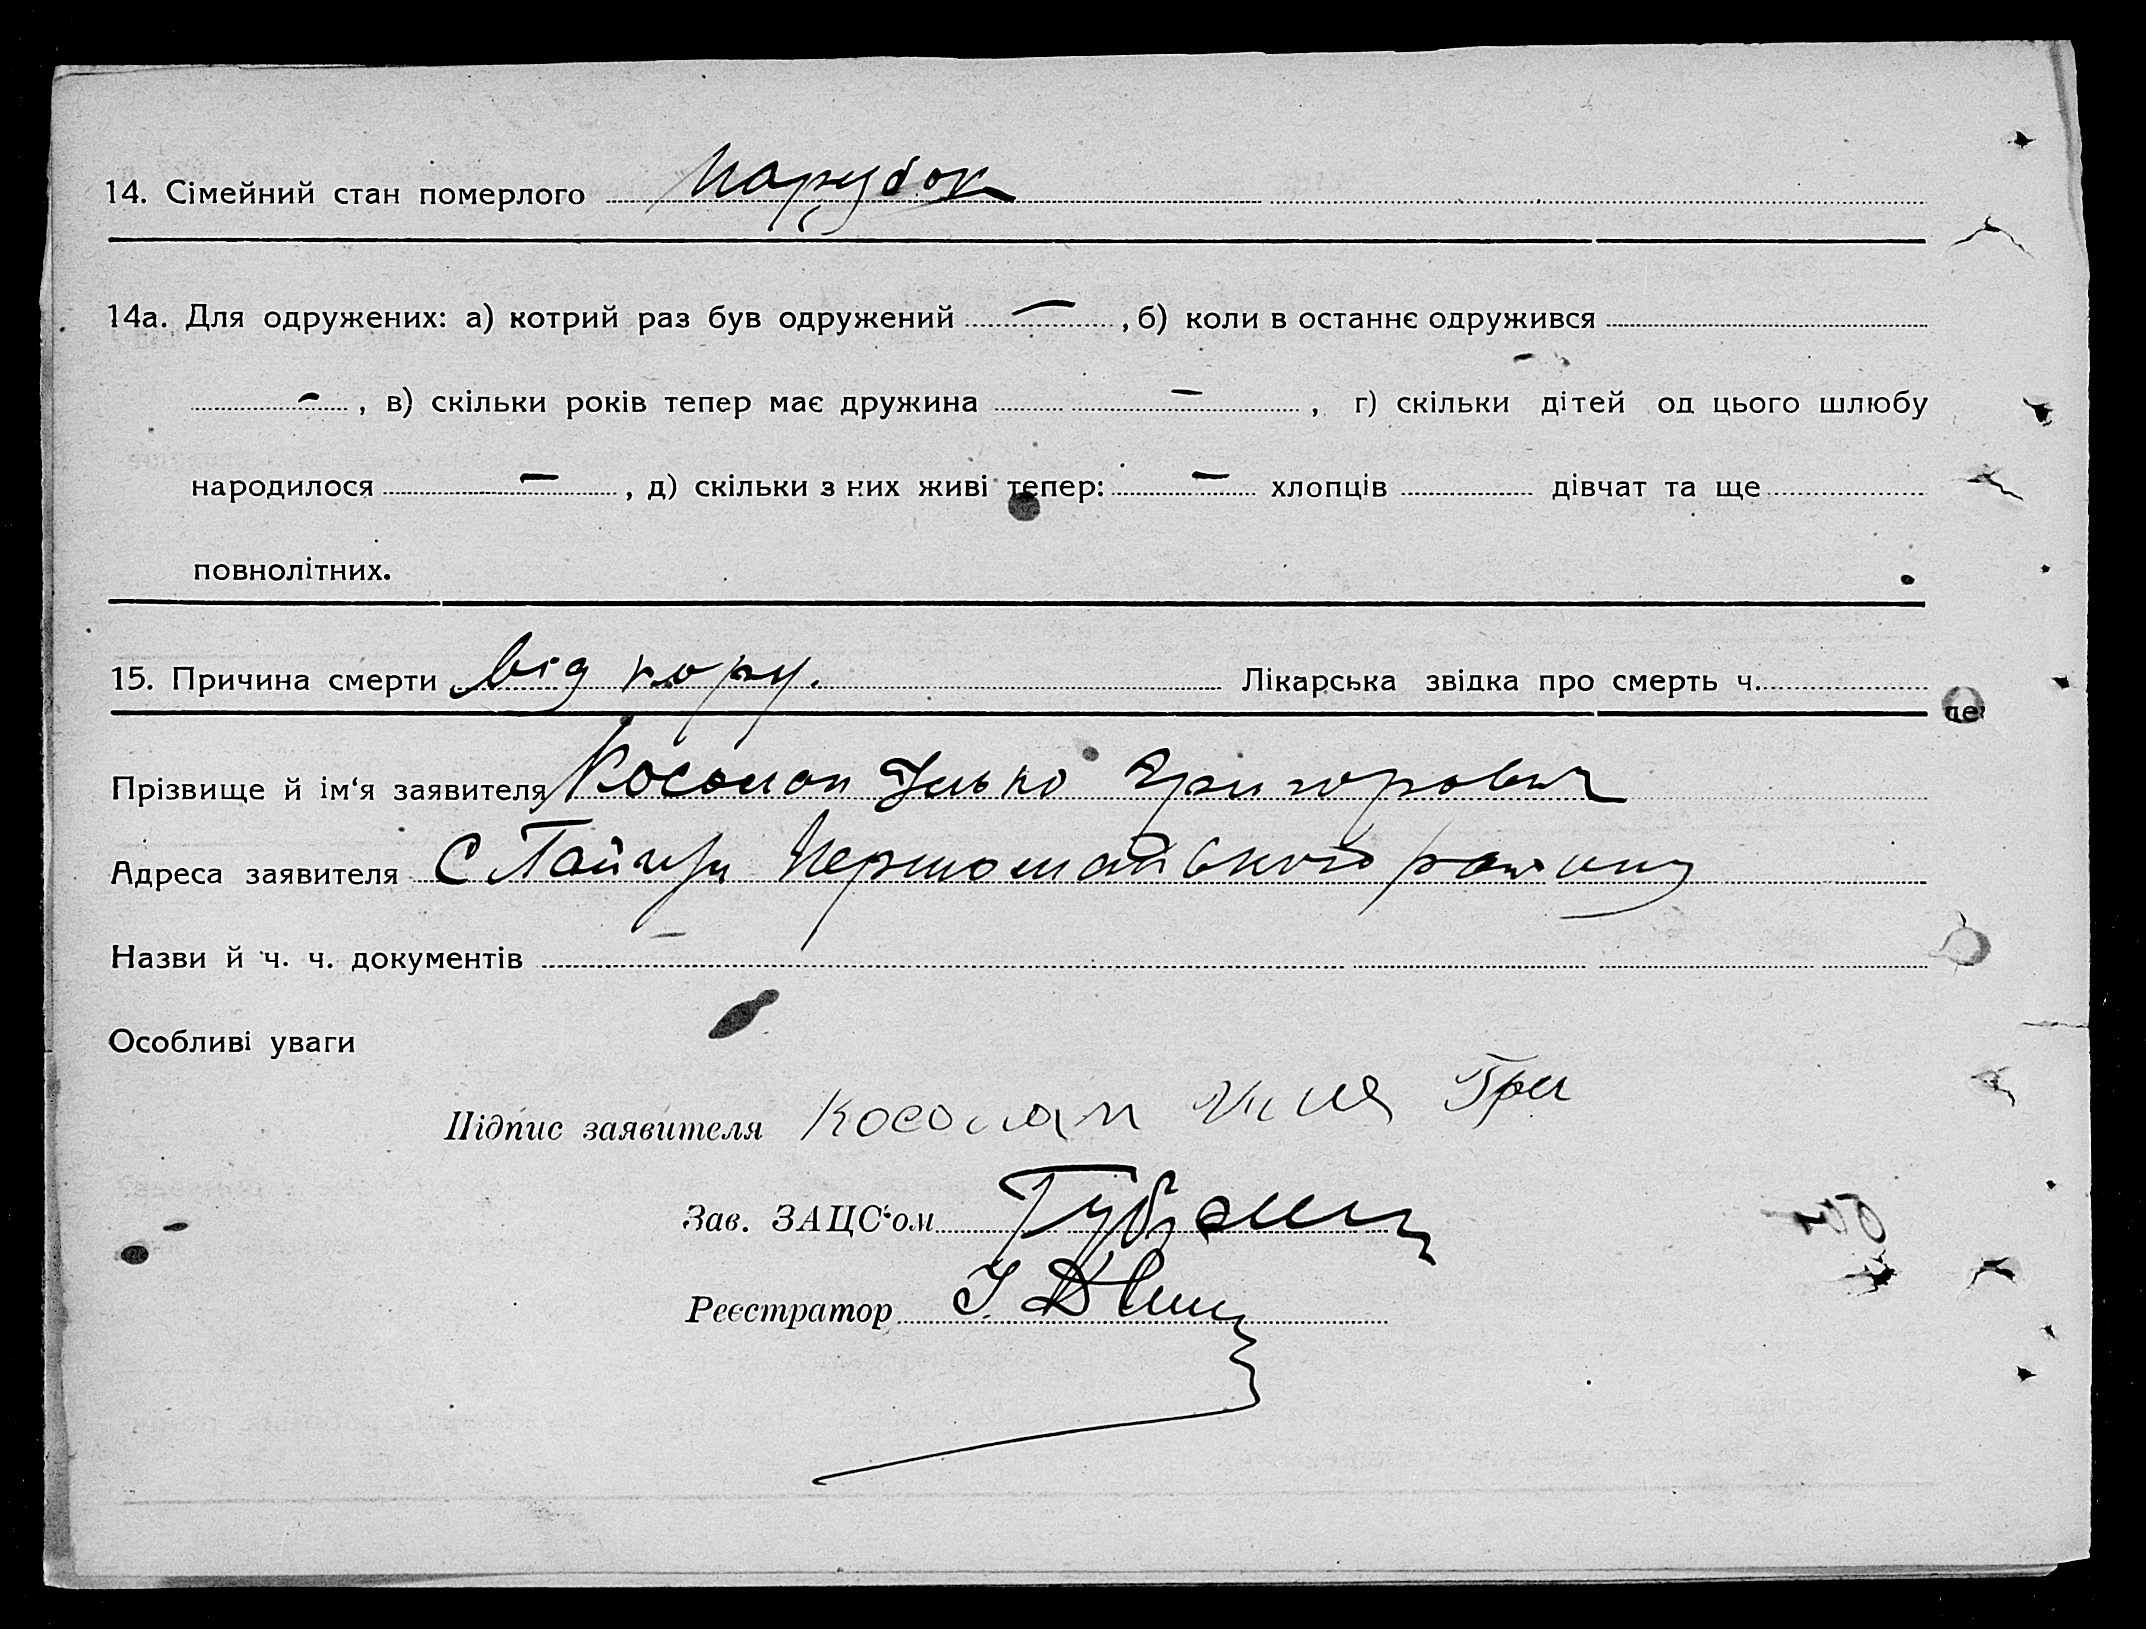 14. Сімейний стан померлого парубок
14а. Для одружених: а) котрий раз був одружений — , б) коли в останнє одружився
— , в) скільки років тепер має дружина — , г) скільки дітей од цього шлюбу
народилося — , д) скільки з них живі тепер: — хлопців дівчат та ще
повнолітних.
15. Причина смерти від кору. Лікарська звідка про смерть ч.
Прізвище й ім'я заявителя Косолап Ілько Григорович
Адреса заявителя С Первомайського району
Назви й ч. ч. документів
Особливі уваги
Підпис заявителя Косолап Илля Гри
Зав. ЗАЦС'ом
Реєстратор